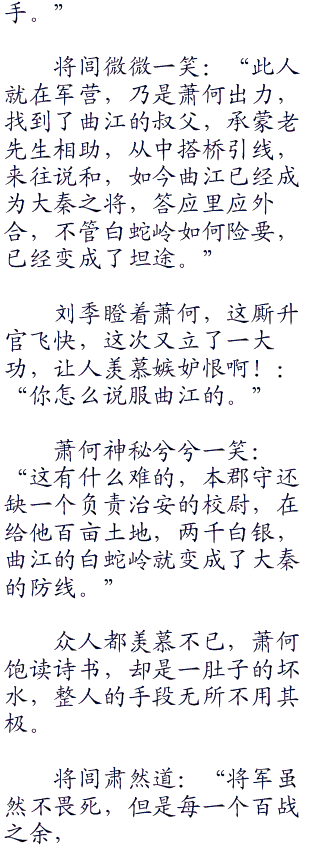 手。”
将闾微微一笑：“此人
就在军营，乃是萧何出力，
找到了曲江的叔父，承蒙老
先生相助，从中搭桥引线，
来往说和，如今曲江已经成
为大秦之将，答应里应外
合，不管白蛇岭如何险要，
已经变成了坦途。”
刘季瞪着萧何，这厮升
官飞快，这次又立了一大
功，让人羡慕嫉妒恨啊！：
“你怎么说服曲江的。”
萧何神秘兮兮一笑：
“这有什么难的，本郡守还
缺一个负责治安的校尉，在
给他百亩土地，两千白银，
曲江的白蛇岭就变成了大秦
的防线。”
众人都羡慕不已，萧何
饱读诗书，却是一肚子的坏
水，整人的手段无所不用其
极。
将闾肃然道：“将军虽
然不畏死，但是每一个百战
之余，